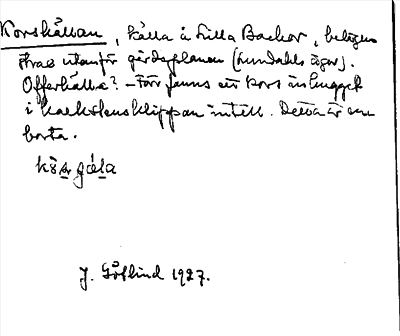 Korskällan, källa å Lilla Backor, belägen
strax utanför gårdsplanen (Lundahls ägor).
Offerkälla? - Förr fanns ett kors inhugget
i kalkstensklippan intill. Detta är nu
borta.
J. Götlind 1927.